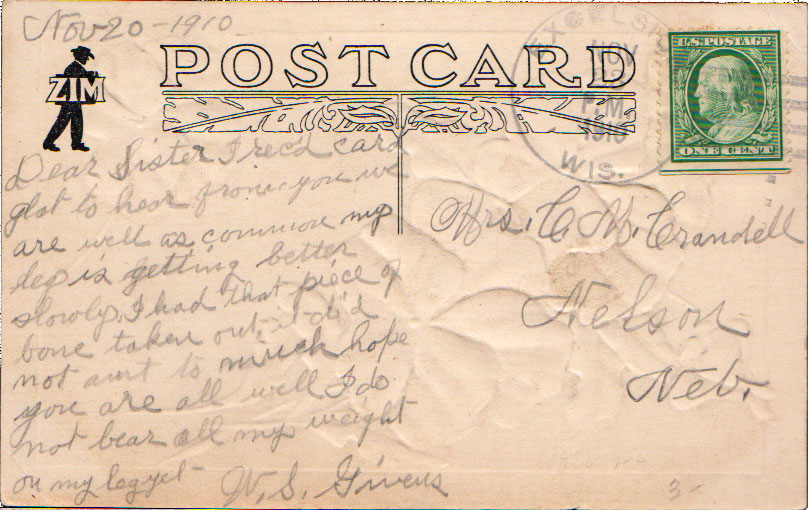 Nov 20-1910
ZIM
POST CARD
EXCELSIOR
NOV
P.M.
1910
WIS.
U.S. POSTAGE
ONE CENT
Dear Sister I rec'd card
glat to hear from you we
are well as common my
leg is getting better
slowly, I had that piece of
bone taken out, it did
not aunt to much hope
you are all well I do
not bear all my weight
on my leg yet- W. S. Givens
Mrs. C. M. Crandell
Nelson
Neb.
3-